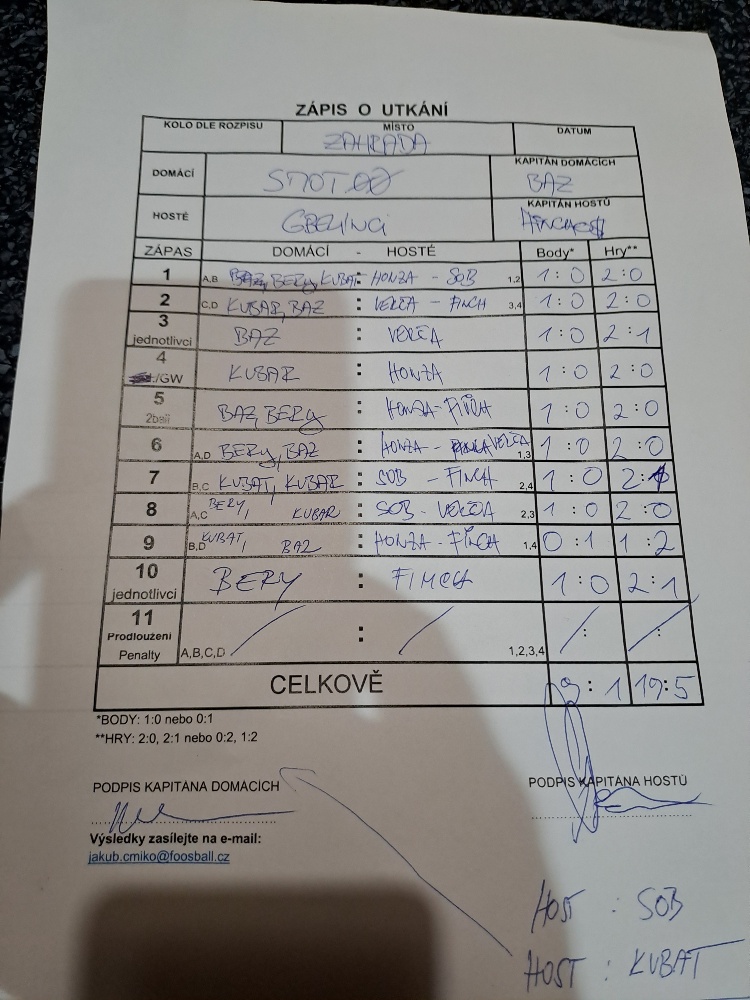 ZÁPIS O UTKÁNÍ
KOLO DLE ROZPISU MÍSTO DATUM
ZAHRADA
DOMÁCÍ KAPITÁN DOMÁCÍCH
BAZ
HOSTÉ KAPITÁN HOSTŮ
GBELÍNCI
ZÁPAS DOMÁCÍ - HOSTÉ Body* Hry**
1 A,B BAZ, BERY, KUBAT : HONZA - SOB 1,2 1:0 2:0
2 C,D KUBAR, BAZ : VERČA - FINCH 3,4 1:0 2:0
3 jednotlivci BAZ : VERČA 1:0 2:1
4 /GW KUBAR : HONZA 1:0 2:0
5 2ball BAZ, BERY : HONZA - FINCH 1:0 2:0
6 A,D BERY, BAZ : HONZA - VERČA 1,3 1:0 2:0
7 B,C KUBAT, KUBAR : SOB - FINCH 2,4 1:0 2:1
8 A,C BERY, KUBAR : SOB - VERČA 2,3 1:0 2:0
9 B,D KUBAT, BAZ : HONZA - FINCH 1,4 0:1 1:2
10 jednotlivci BERY : FINCH 1:0 2:1
11 Prodloužení Penalty A,B,C,D / : / 1,2,3,4 /: /:
CELKOVĚ 9:1 19:5
*BODY: 1:0 nebo 0:1
**HRY: 2:0, 2:1 nebo 0:2, 1:2
PODPIS KAPITÁNA DOMÁCÍCH PODPIS KAPITÁNA HOSTŮ
Výsledky zasílejte na e-mail:
jakub.cmiko@foosball.cz
HOST : SOB
HOST : KUBAT